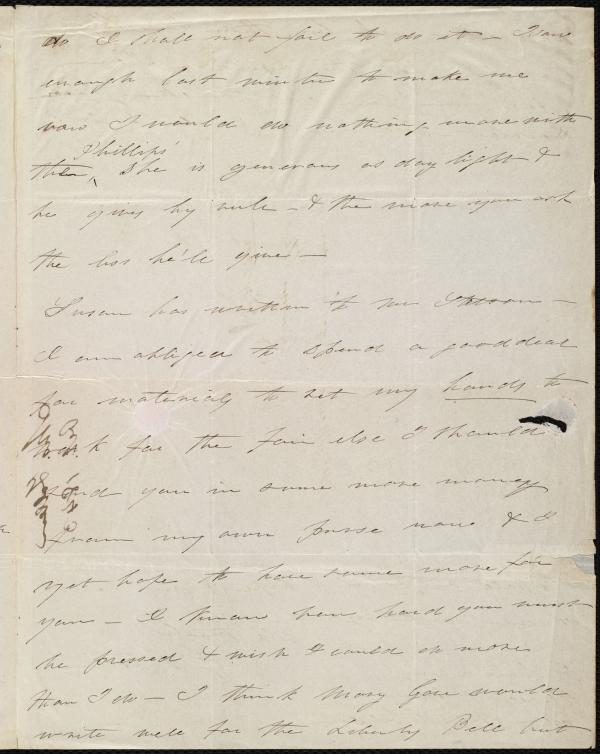 do I shall not fail to do it - I saw
enough last winter to make me
vow I would do nothing more with
Phillips'
them, She is generous as day light &
he gives by rule - & the more you ask
the less he'll give -
Susan has written to me
I am obliged to spend a good deal
for materials to set my hands to
work for the Fair else I should
send you in some more money
from my own purse now & I
yet hope to have some more for
you - I know how hard you must
be pressed & wish I could do more
than I do - I think Mary Gove would
write well for the Liberty Bell but